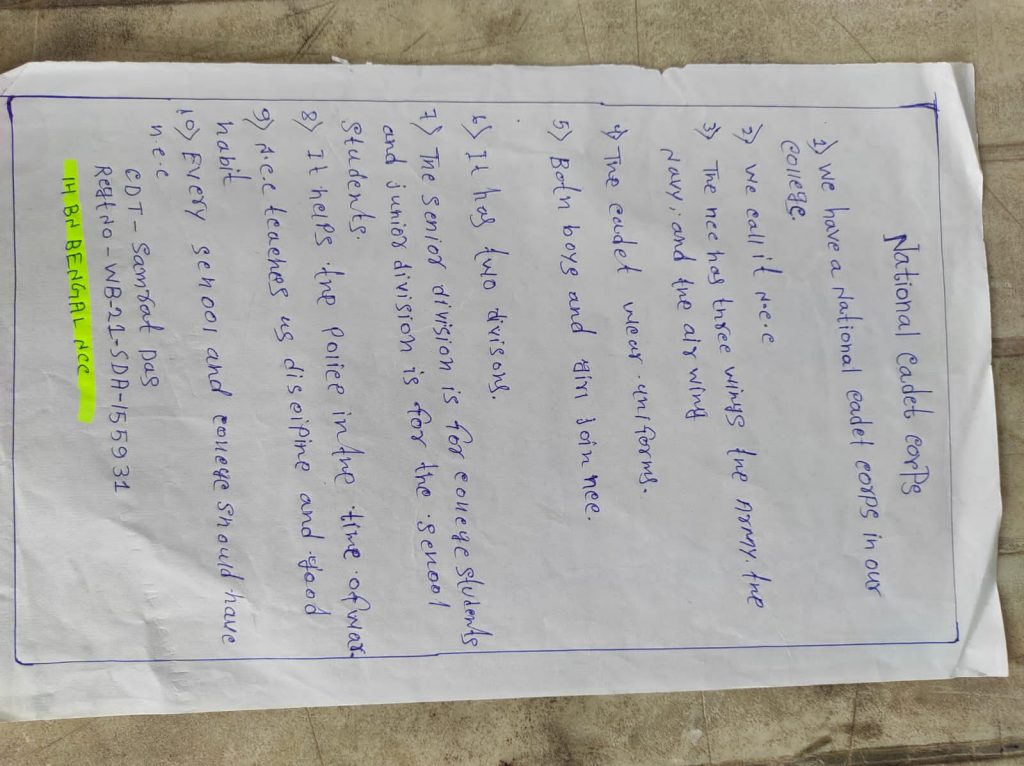 National cadet corps
1) we have a National cadel corps in our
college.
2) we call it N.c.c
3) The ncc has three wings the Army. the
Navy. and the air wing
4) The cadet wear uniforms.
5) Both boys and girl join ncc.
6) It has two divisons.
7) The senior division is for college students
and junior division is for the school
students.
8) It helps the police in the time of war.
9) N.c.c teaches us discipine and good
habit
10) Every school and college should have
n.c.c
CDT - Samrat Das
Regt No - WB-21-SDA-155931
1H BN BENGAL NCC